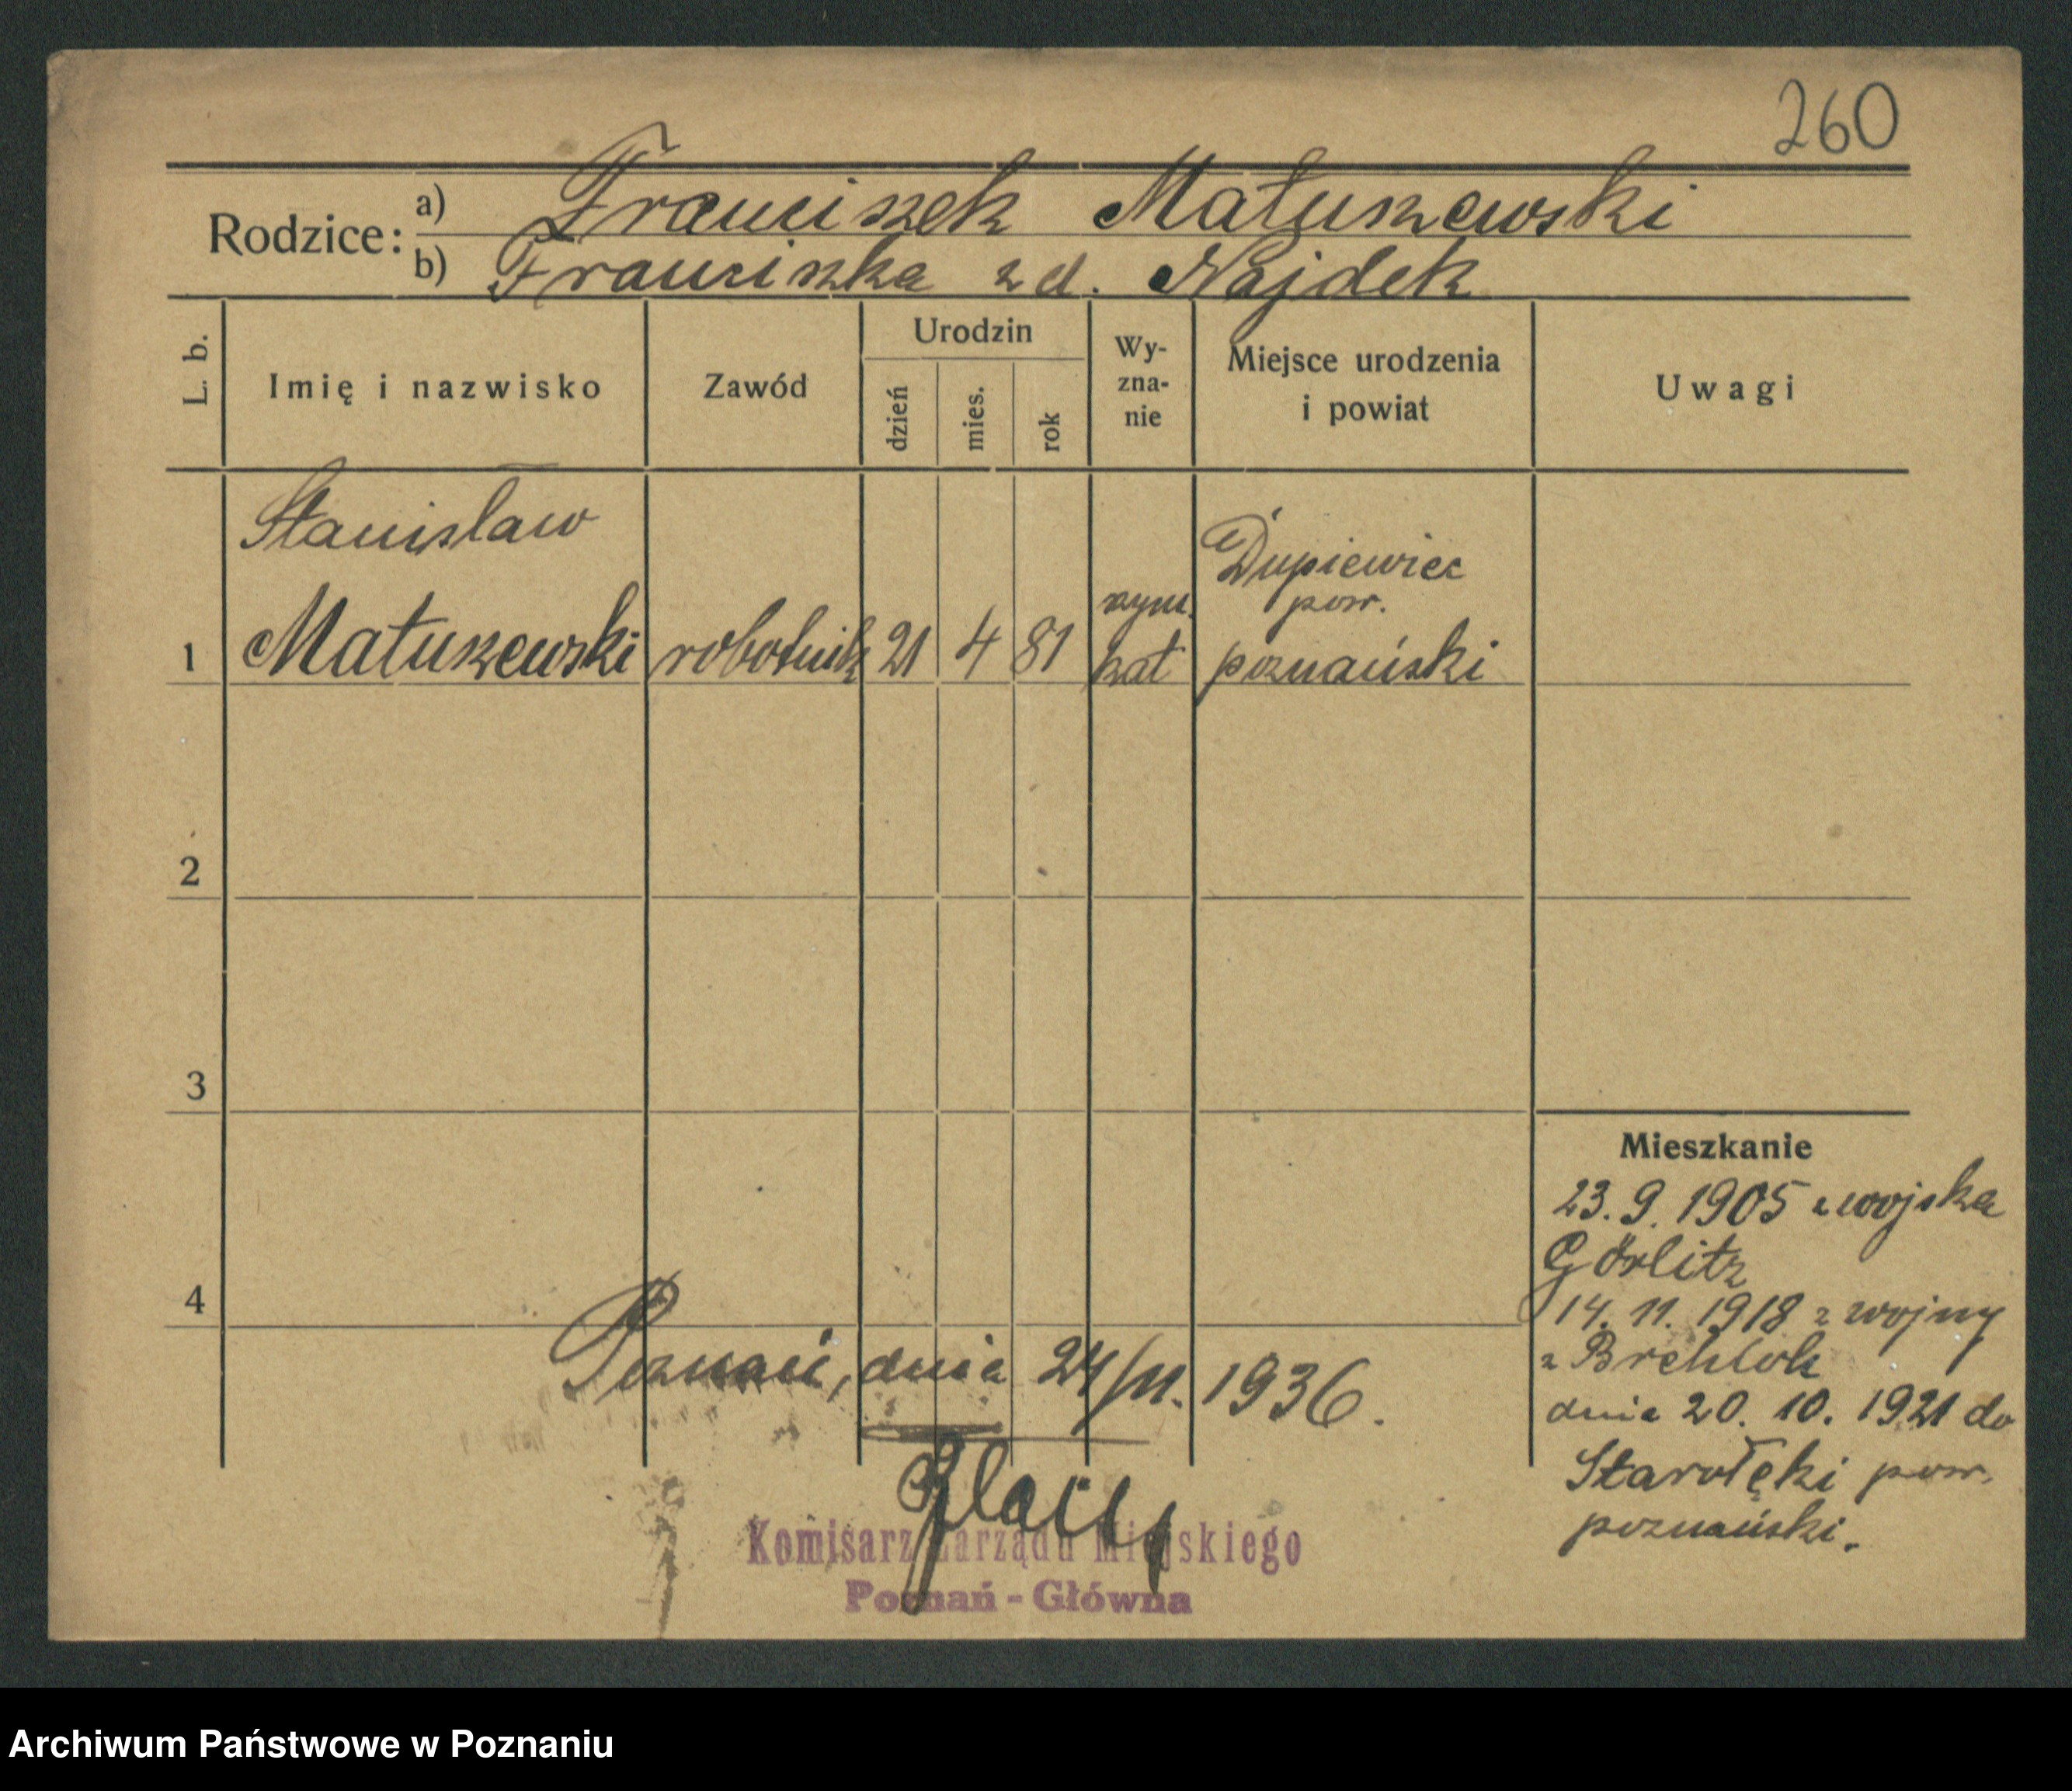 260
Rodzice: a) Franciszek Matuszewski
b) Franciszka z d. Najdek
L. b.
Imię i nazwisko
Zawód
Urodzin
dzień
mies.
rok
Wy-
zna-
nie
Miejsce urodzenia
i powiat
Uwagi
Stanisław
Dupiewiec
rzym. pow.
1 Matuszewski robotnik 21 4 81 kat poznański
2
3
Mieszkanie
23. 9. 1905 z wojska
Görlitz
4
14. 11. 1918 z wojny
z
dnia 20. 10. 1921 do
Starołęki pow.
poznański.
Poznań, dnia 24/11. 1936.
Komisarz Zarządu Miejskiego
Poznań - Główna
Archiwum Państwowe w Poznaniu